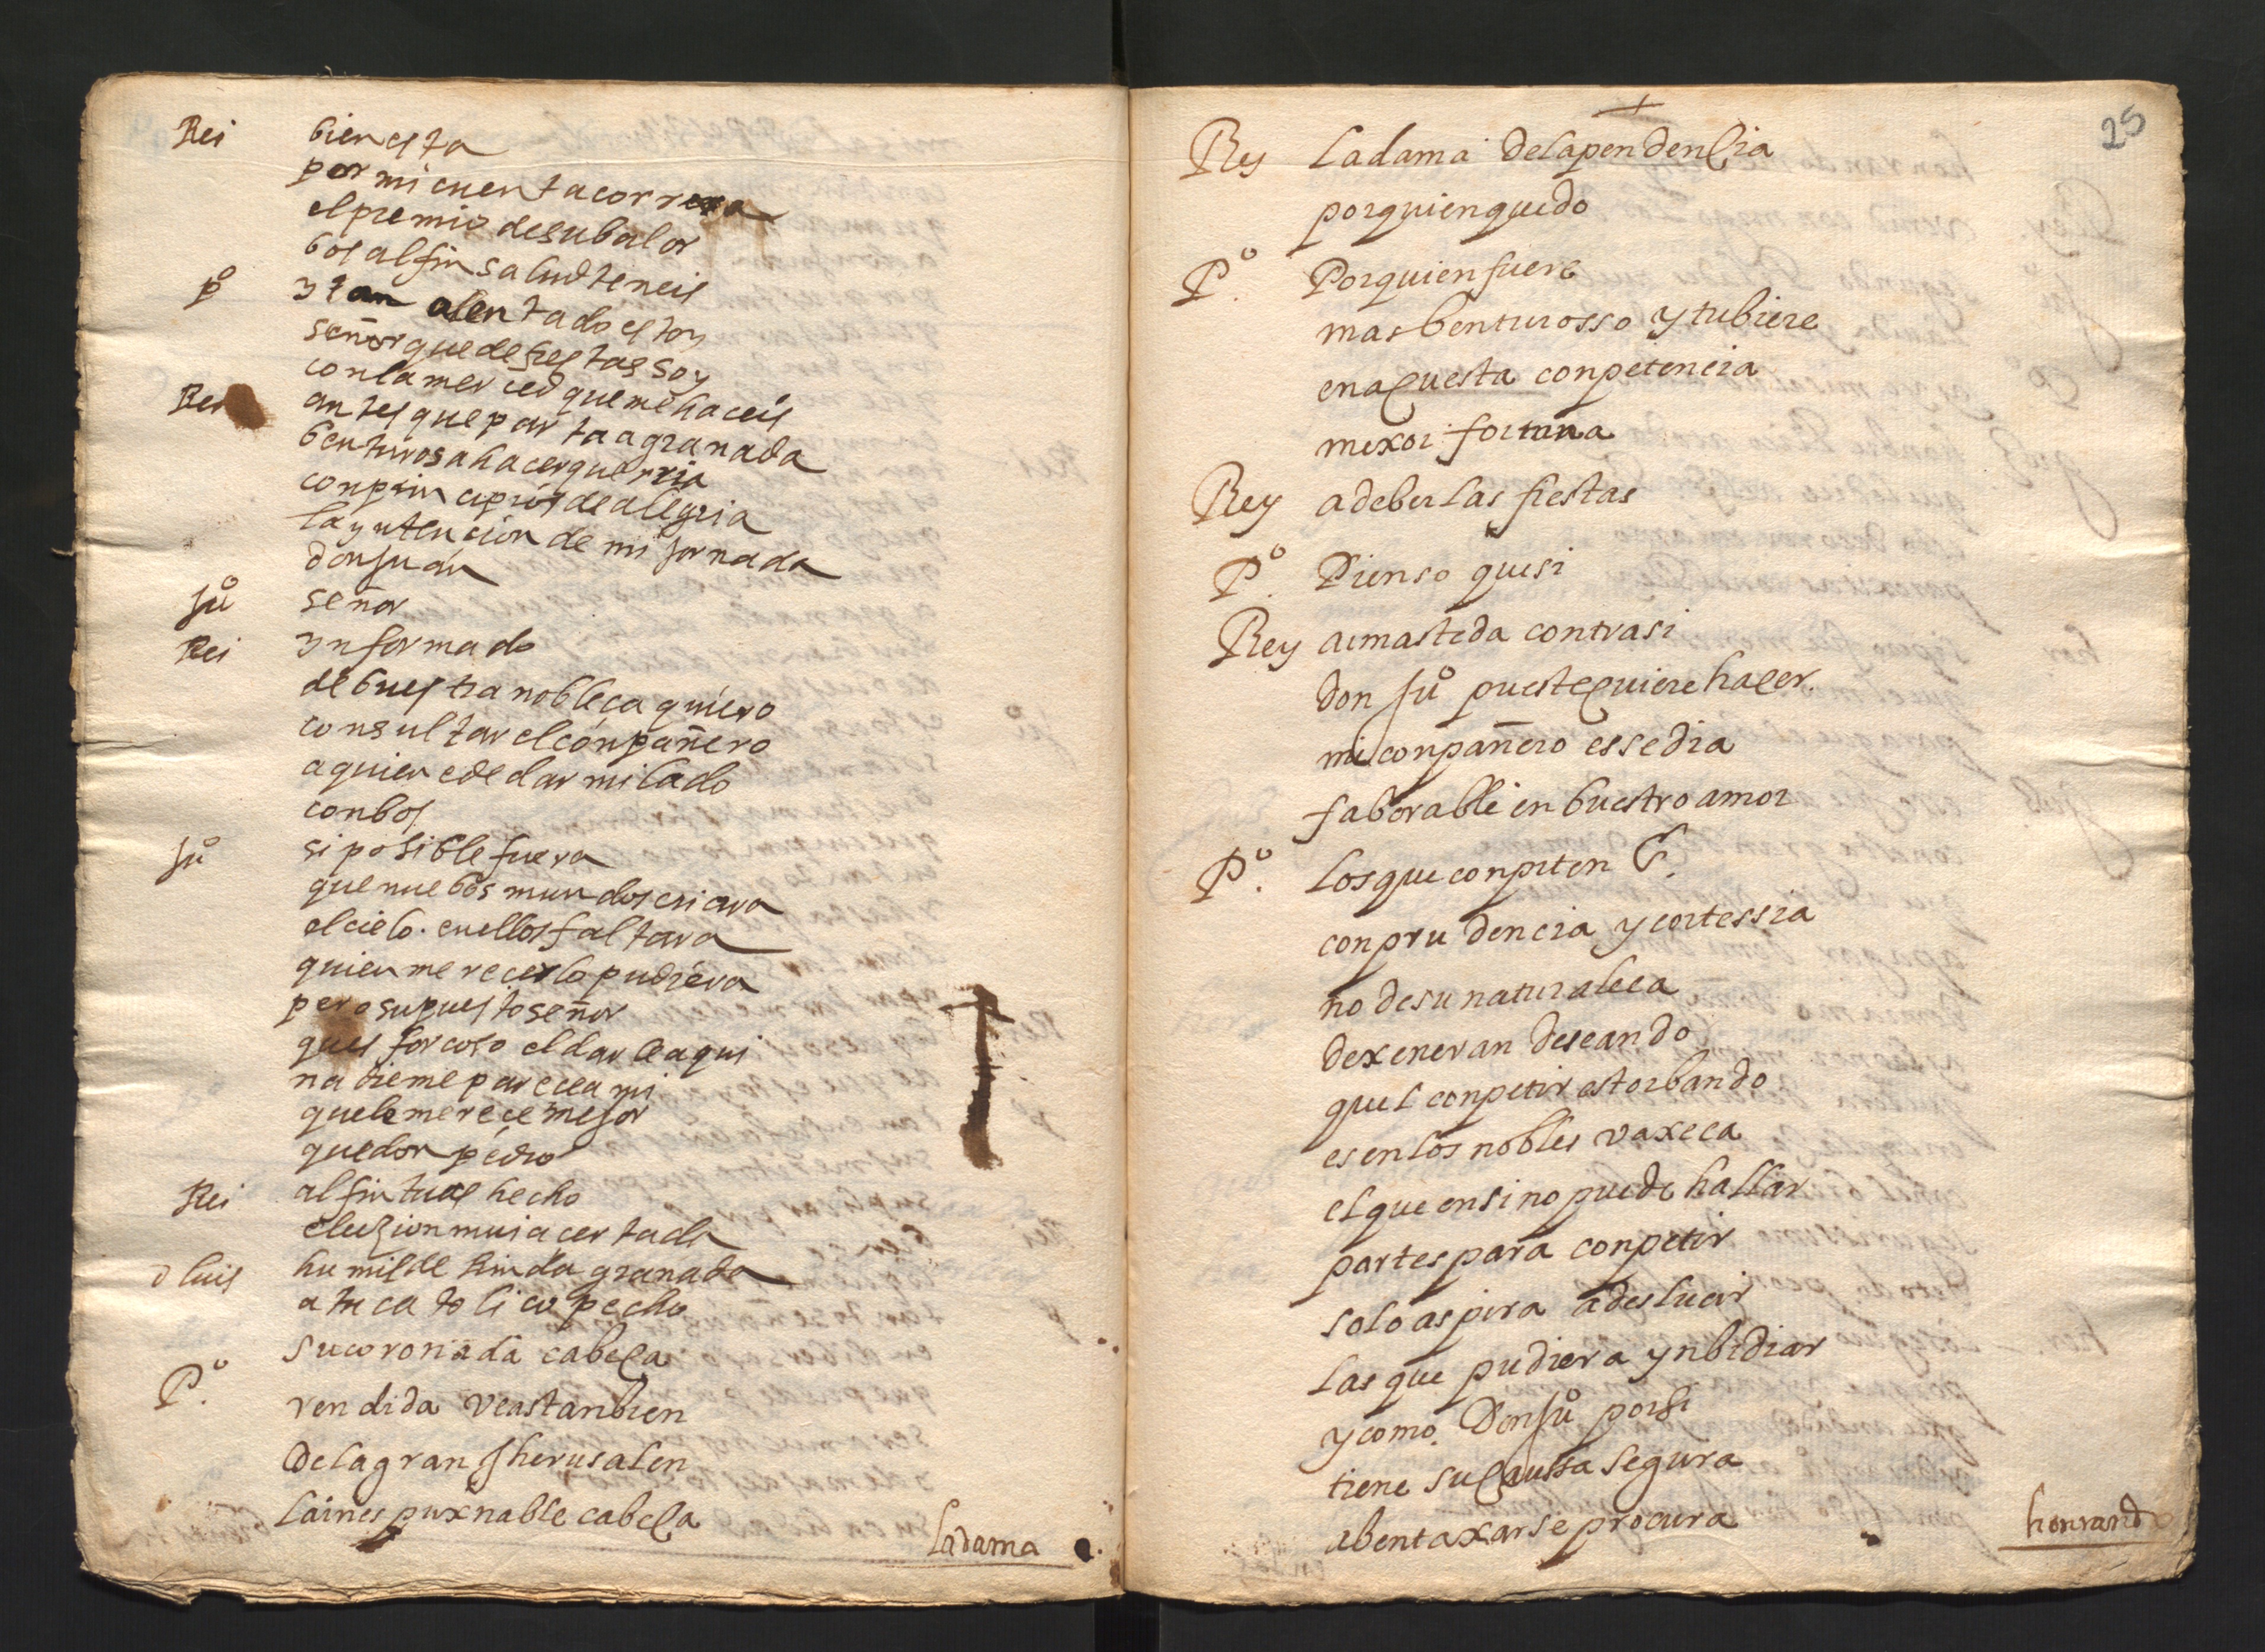 Rei bien esta
por mi cuenta correra
el premio de su balor
bos al fin salud teneis
pº y tan alentado estoy
señor que de fiestas soy
con la merced que me haceis
Rei antes que parta a granada
benturosa hacer querria
con principios de alegria
la yntencion de mi jornada
don juan
Juº señor
Rei ynformado
de buestra nobleça quiero
consultar el conpañero
a quien e de dar mi lado
con bos
Juº si posible fuera
que nuebos mundos criara
el cielo. en ellos faltara
quien merecerlo pudiera
pero supuesto señor
ques forcoso el darle aqui
nadie me parece a mi
que le merece mejor
que don pedro
Rei al fin tu as hecho
eleczion mui acertada
d luis humilde rinda granada
a tu catolico pecho
su coronada cabeça
Pº. rendida veas tanbien
de la gran Jherusalen
la inespuxnable cabeça
la dama
25
Rey La dama de la pendençia
por quien quedo
Pº. Por quien fuere
mas benturosso y tubiere
en aquesta conpetencia
mexor fortuna
Rey a de ber las fiestas
Pº. Pienso que si
Rey armaste da contra si
don Juº pues te quiere haçer.
mi conpañero esse dia
faborable en buestro amor
Pº. Los que conpiten S.
con prudencia y cortessia
no de su naturaleça
dexeneran deseando
quel conpetir estorbando
es en los nobles vaxeça
el que en si no puede hallar
partes para conpetir
solo aspira a deslucir
las que pudiera ynbidiar
y como. Don Juº por si
tiene su caussa segura
abentaxarse procura
honrando